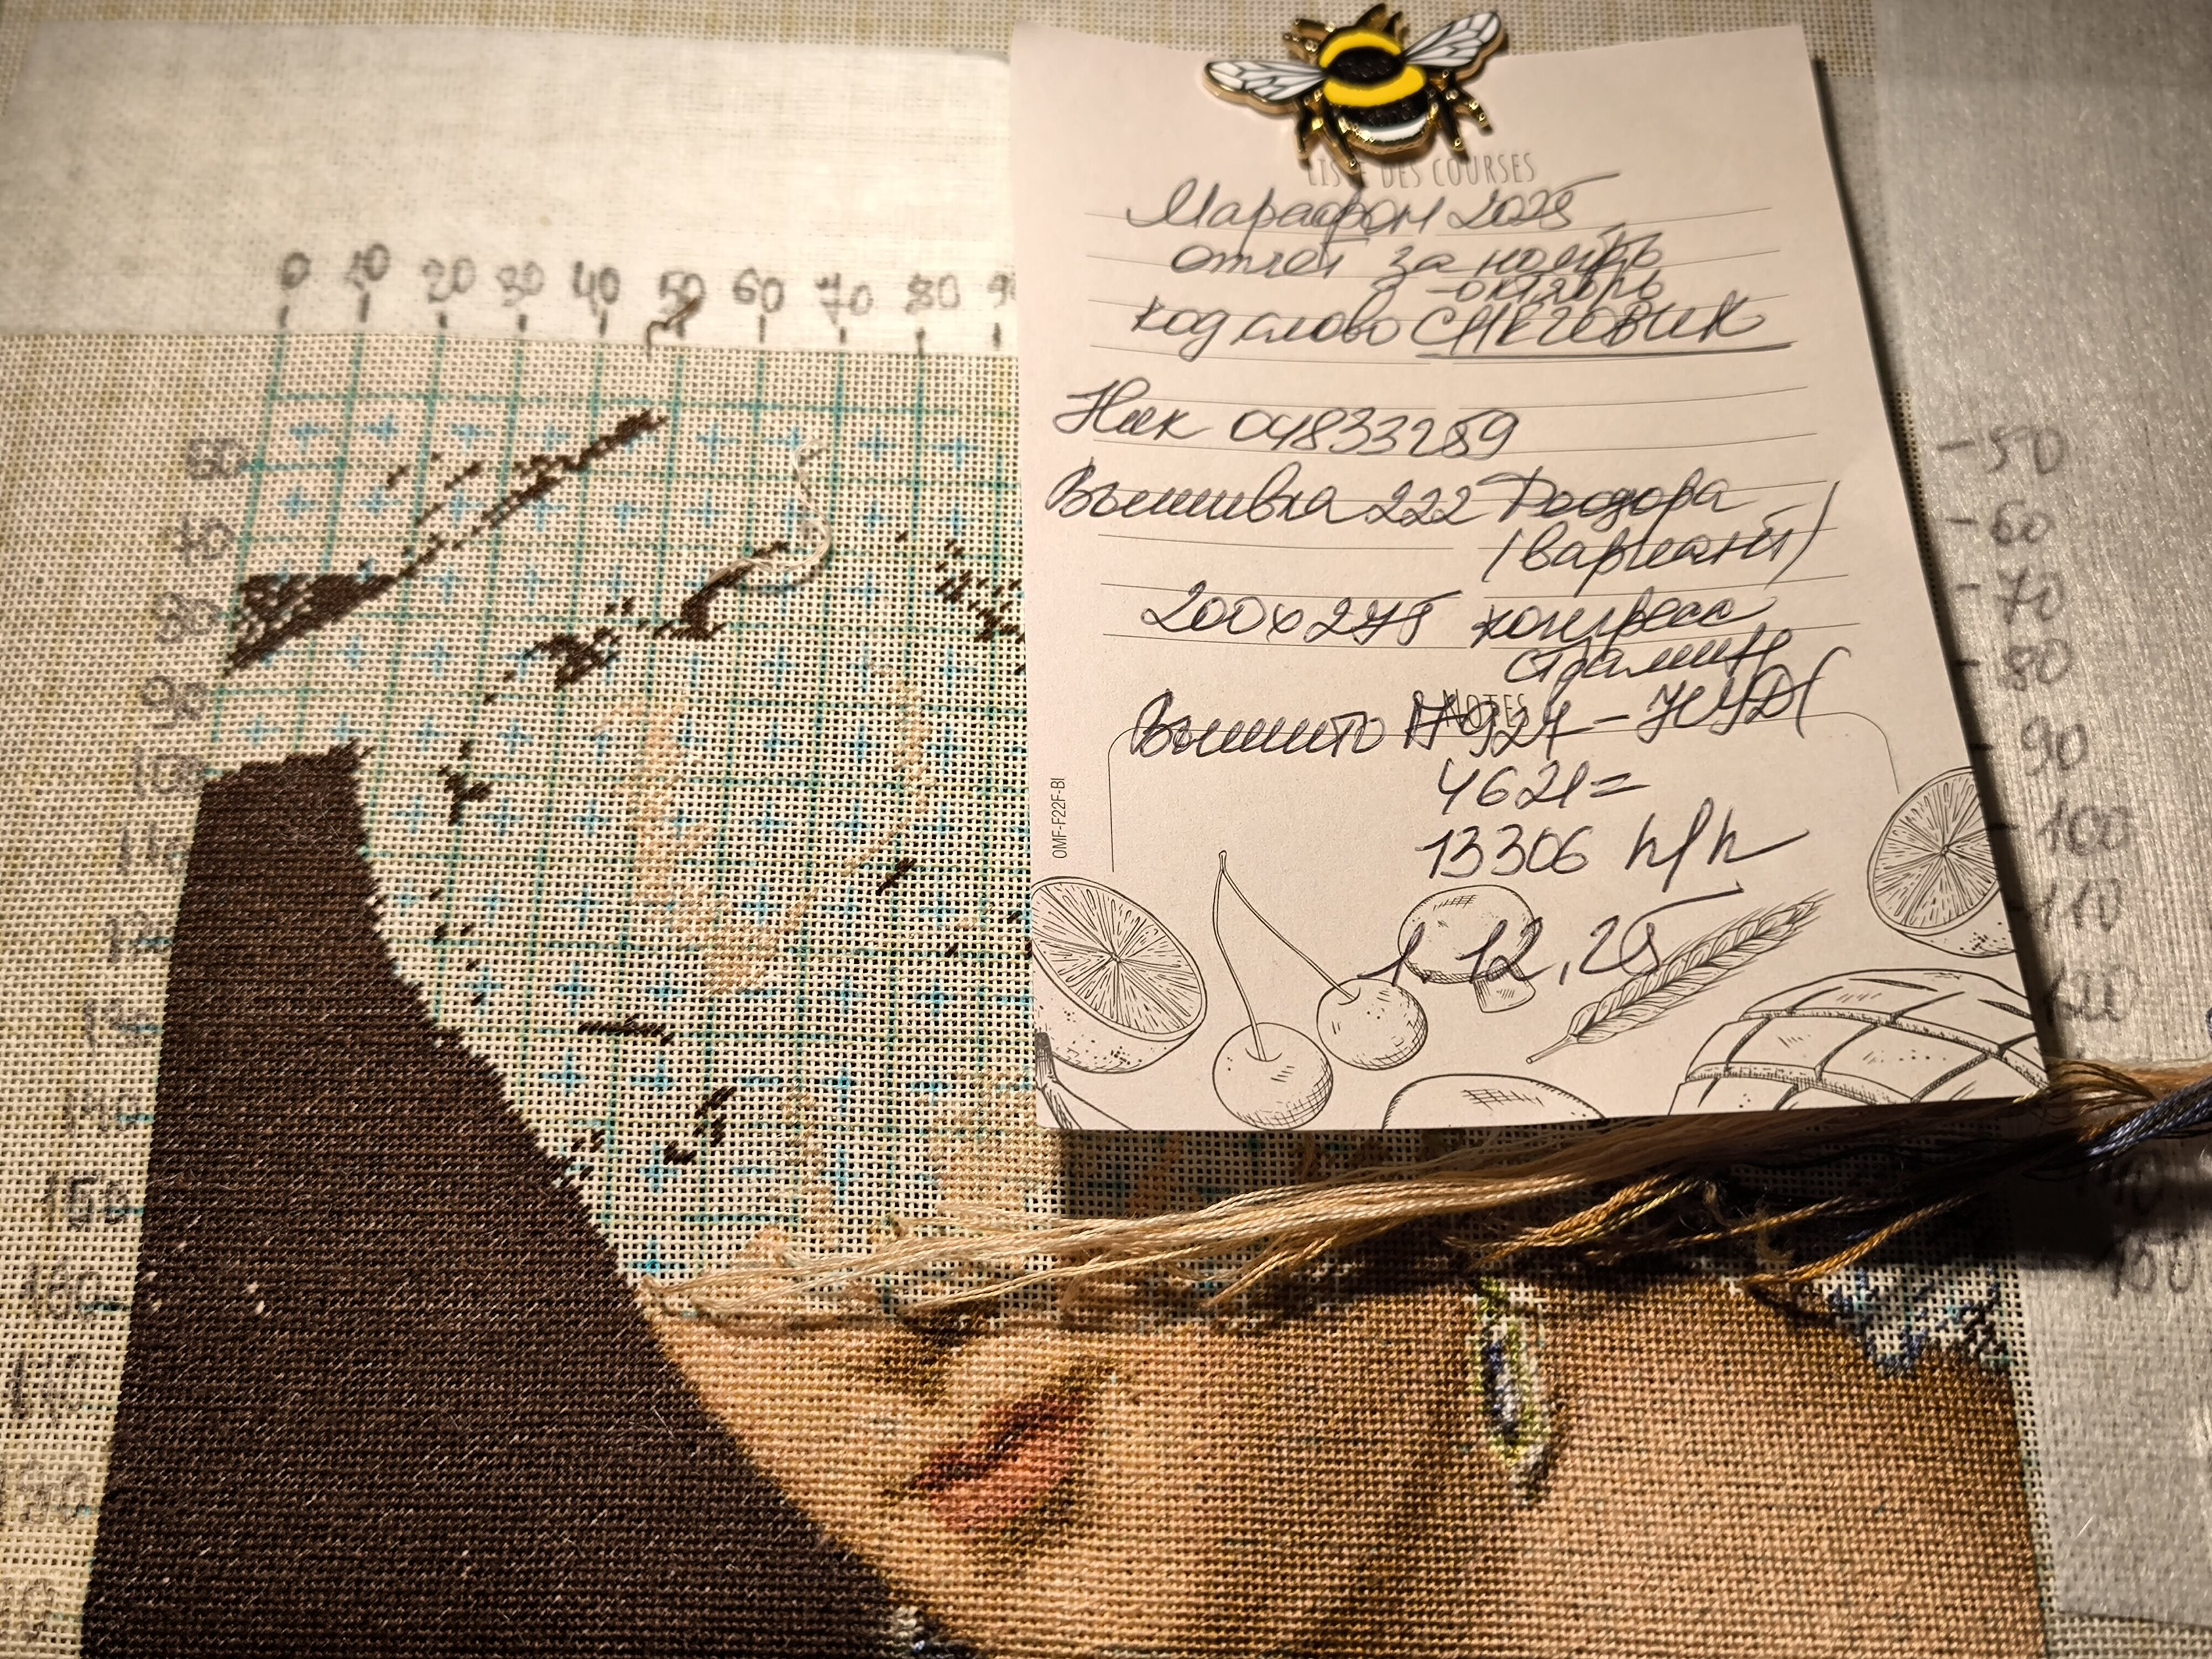 0 10 20 30 40 50 60 70 80 90
60
70
80
90
100
110
12
130
140
150
160
LISTE DES COURSES
Марафон 2025
отчет за ноябрь
-октябрь
код слово СНЕГОВИК
Ник 04833289
Вышивка 222 Теодора
(вариант)
200х275 конгресс
страмин
NOTES
Вышито 17927 –
4621=
13306 н/н
1.12.25
OMF-F22F-BI
-50
-60
-70
-80
90
-100
110
120